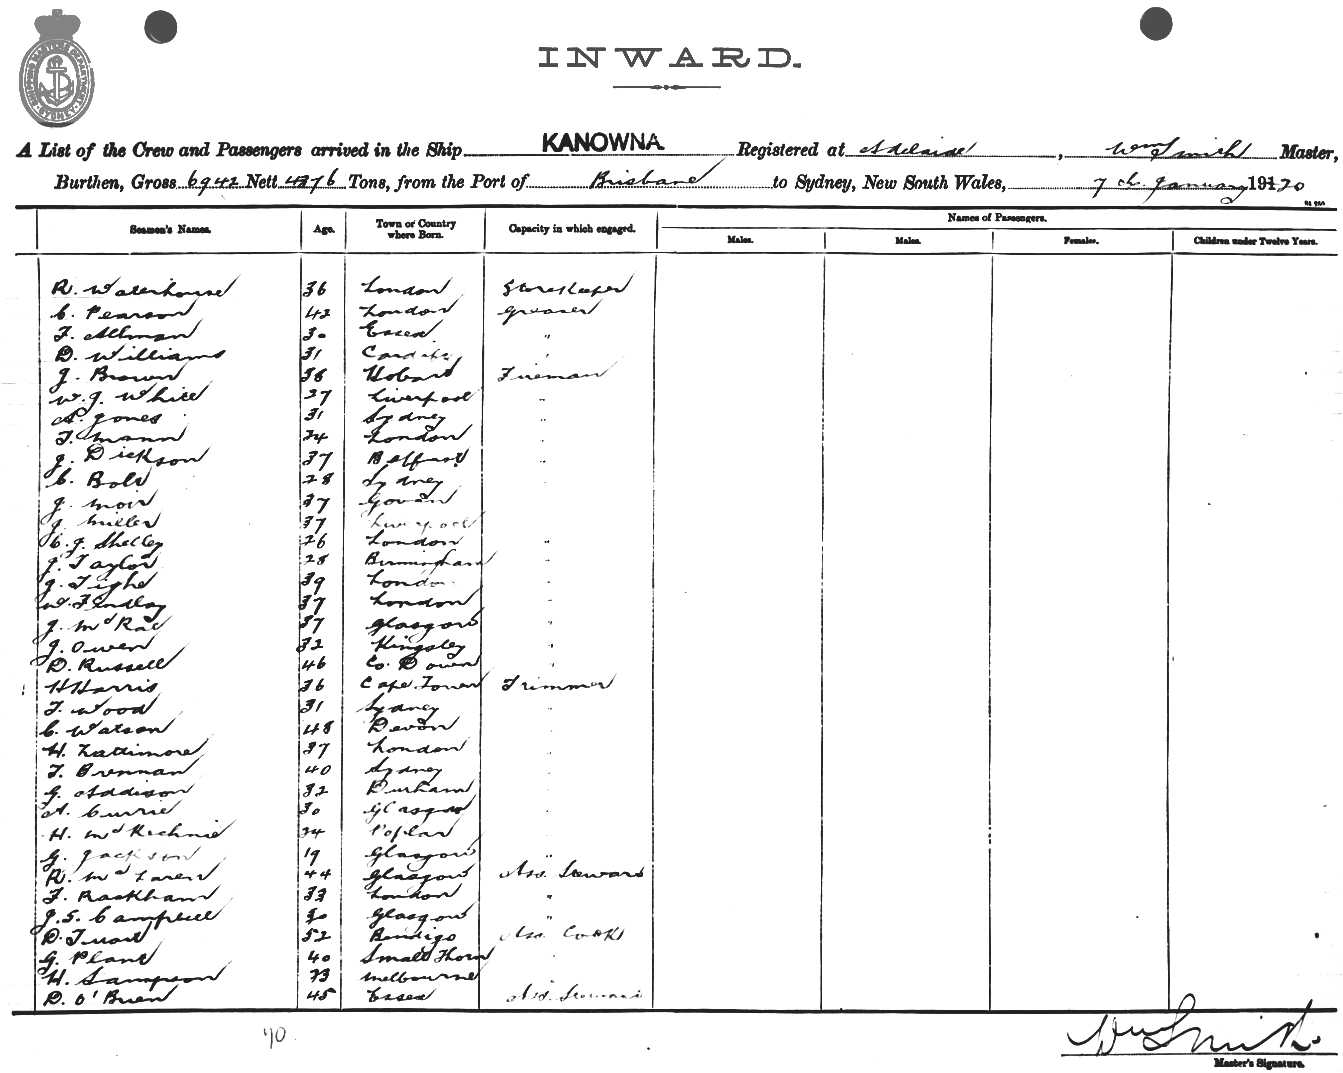 SHIPPING MASTERS DEPARTMENT SYDNEY
INWARD.
A List of the Crew and Passengers arrived in the Ship KANOWNA Registered at Adelaide, Wm Smith Master,
Burthen, Gross 6942 Nett 4376 Tons, from the Port of Brisbane to Sydney, New South Wales, 7th January 1920
Seamen's Names. Age. Town or Country where Born. Capacity in which engaged. Names of Passengers.
Males. Males. Females. Children under Twelve Years.
R. Waterhouse 36 London Storekeeper
C. Pearson 42 London Greaser
F. Allman 30 Essex "
D. Williams 31 Cardiff "
J. Brown 38 Hobart Fireman
W. J. White 27 Liverpool "
A. Jones 31 Sydney "
T. Mann 24 London "
J. Dickson 37 Belfast "
C. Bole 28 Sydney
J. Moir 37 Govan
J. Miller 37 Liverpool
C. J. Shelley 26 London "
J. Taylor 28 Birmingham "
J. Tighe 39 London "
W. Findlay 37 London "
J. McRae 37 Glasgow "
J. Owen 32 Kingsley "
D. Russell 46 Co. Down "
H Harris 36 Cape Town Trimmer
T. Wood 31 Sydney "
C. Watson 48 Devon "
H. Lattimore 37 London "
T. Brennan 40 Sydney
G. Addison 32 Durham "
A. Currie 30 Glasgow "
H. McKechnie 24 Poplar "
G. Jackson 19 Glasgow "
R. McLaren 44 Glasgow Ass. Steward
F. Rackham 33 London "
J. S. Campbell 30 Glasgow "
D. Tuart 52 Bendigo Ass. Cook
G. Plant 40 Small Thorn "
H. Sampson 23 Melbourne "
D. O'Brien 45 Essex Ass. Steward
40
Wm Smith
Master's Signature.